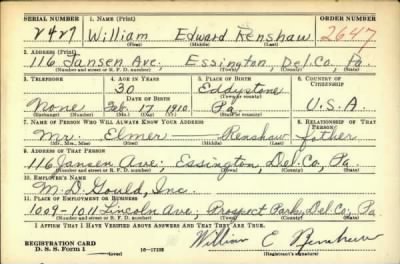 SERIAL NUMBER 1. NAME (Print) ORDER NUMBER
2427 William Edward Renshaw 2647
(First) (Middle) (Last)
2. ADDRESS (Print)
116 Jansen Ave; Essington, Del. Co, Pa.
(Number and street or R. F. D. number) (Town) (County) (State)
3. TELEPHONE 4. AGE IN YEARS 5. PLACE OF BIRTH 6. COUNTRY OF CITIZENSHIP
30 Eddystone
DATE OF BIRTH (Town or county)
None Feb. 17, 1910. Pa. U.S.A.
(Exchange) (Number) (Mo.) (Day) (Yr.) (State or country)
7. NAME OF PERSON WHO WILL ALWAYS KNOW YOUR ADDRESS 8. RELATIONSHIP OF THAT PERSON
Mr. Elmer Renshaw father
(Mr., Mrs., Miss) (First) (Middle) (Last)
9. ADDRESS OF THAT PERSON
116 Jansen Ave; Essington, Del. Co, Pa.
(Number and street or R. F. D. number) (Town) (County) (State)
10. EMPLOYER'S NAME
M. D. Gould, Inc.
11. PLACE OF EMPLOYMENT OR BUSINESS
1009-1011 Lincoln Ave, Prospect Park, Del. Co, Pa
(Number and street or R. F. D. number) (Town) (County) (State)
I AFFIRM THAT I HAVE VERIFIED ABOVE ANSWERS AND THAT THEY ARE TRUE.
REGISTRATION CARD
D. S. S. Form 1 16-17105 William E Renshaw
(Registrant's signature)